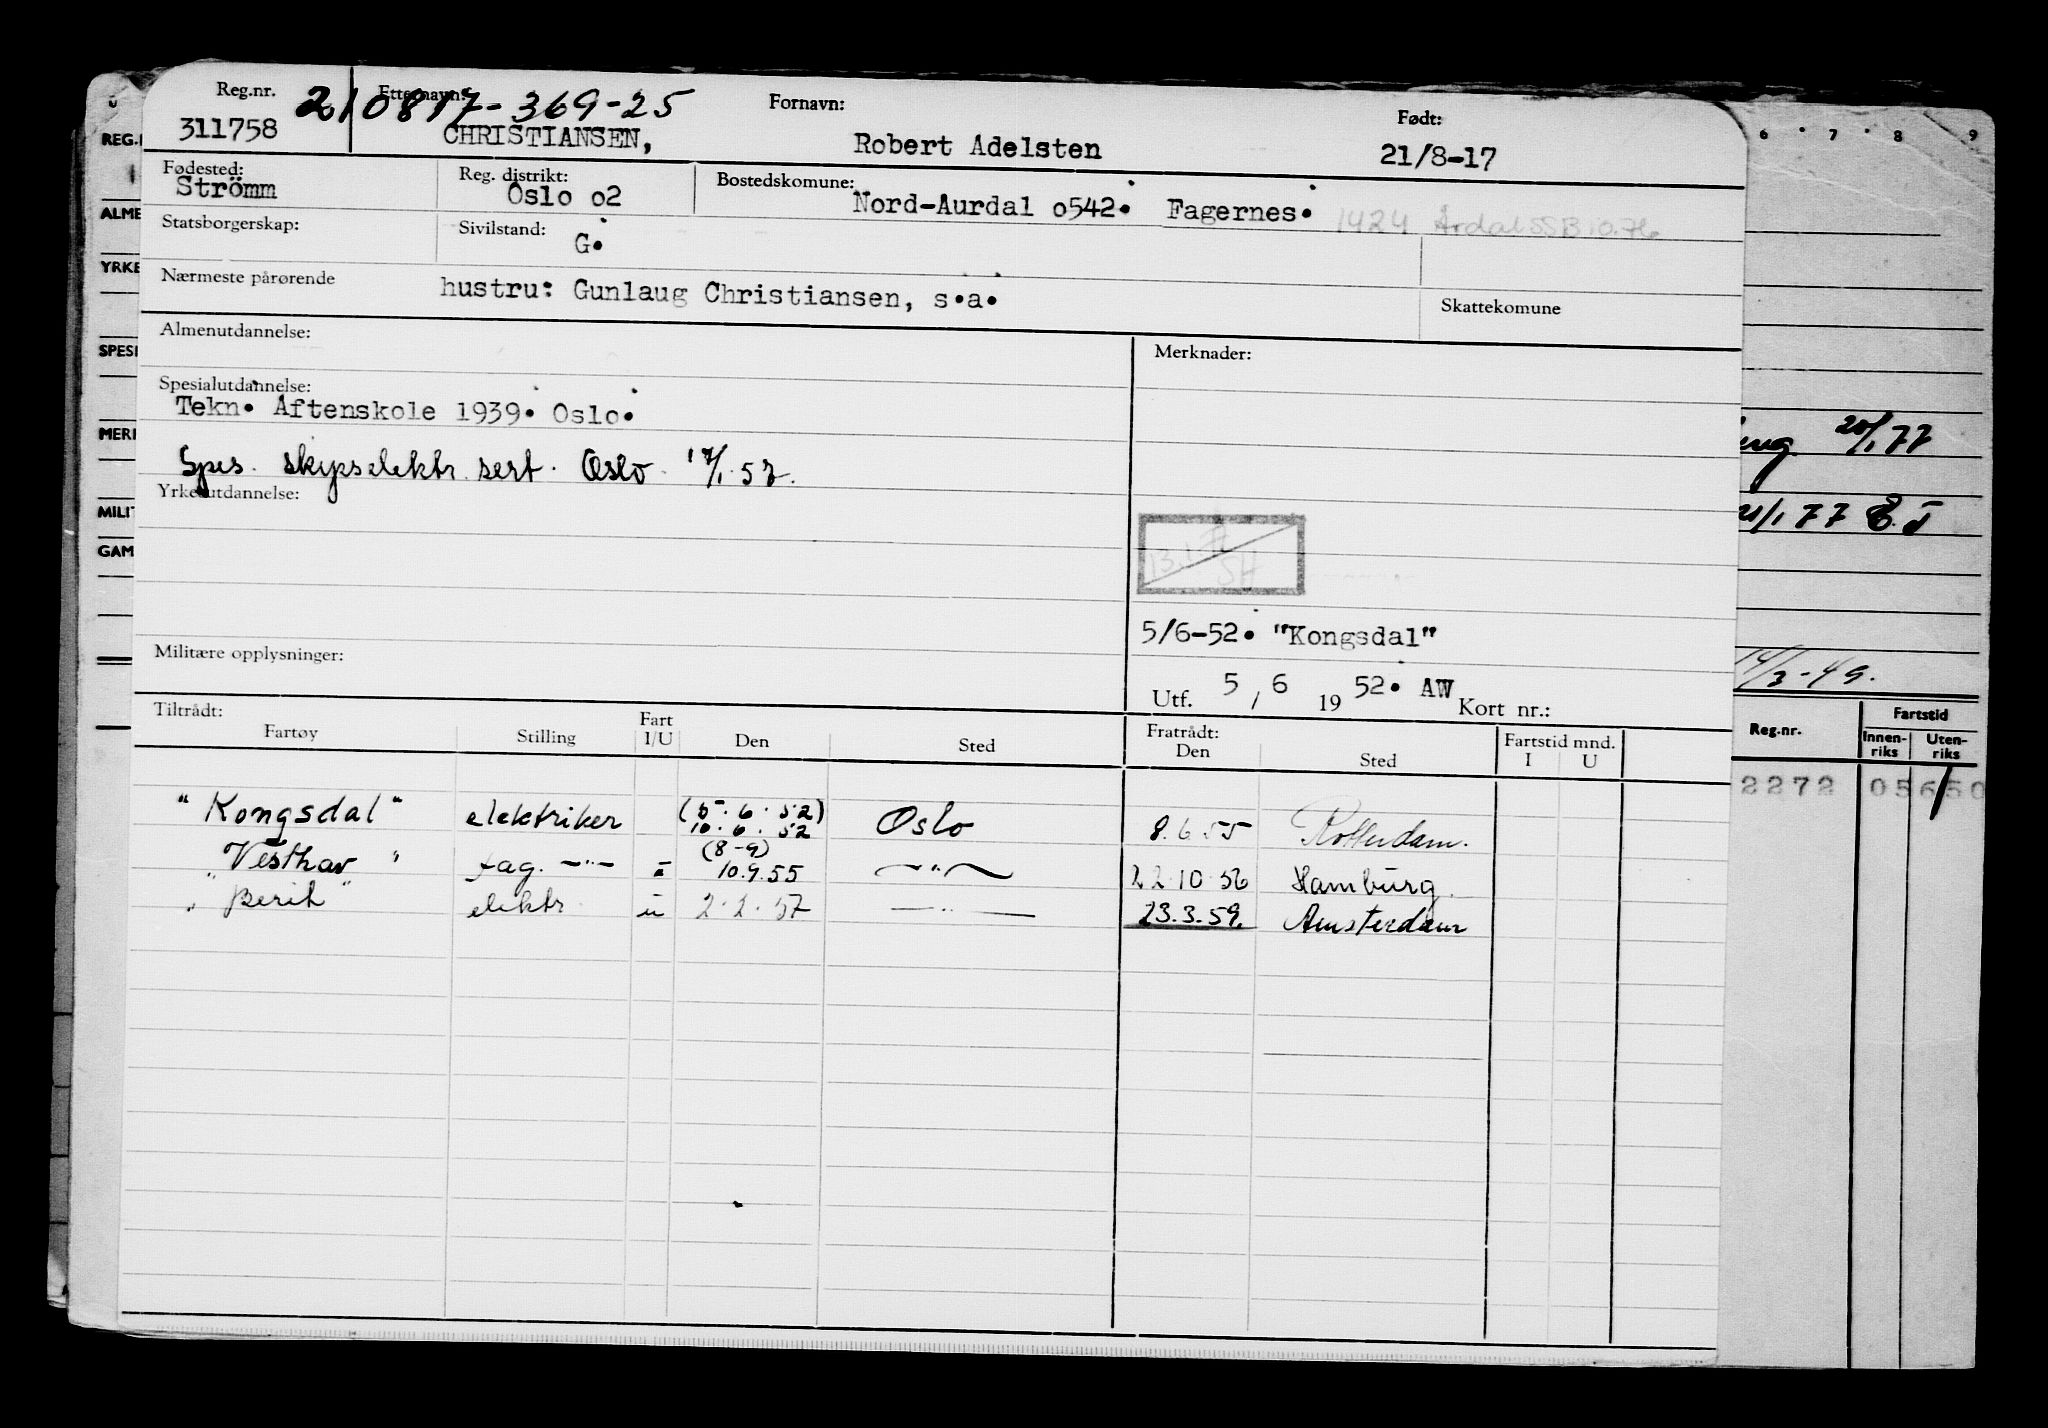 Reg.nr. Etternavn: Fornavn: Født:
210817-369-25
311758 CHRISTIANSEN, Robert Adelsten 21/8-17
Fødested: Reg. distrikt: Bostedskomune:
Strömm Oslo o2 Nord-Aurdal o542. Fagernes. 1424 Årdal SSB 10.76
Statsborgerskap: Sivilstand:
G.
Nærmeste pårørende hustru: Gunlaug Christiansen, s.a. Skattekomune
Almenutdannelse: Merknader:
Spesialutdannelse:
Tekn. Aftenskole 1939. Oslo.
Spes. skipselektr. sert. Oslo 17/1.57.
Yrkesutdannelse:
5/6-52. "Kongsdal"
Militære opplysninger:
Utf. 5 / 6 19 52. AW Kort nr.:
Tiltrådt: Fratrådt:
Fartøy Stilling Fart I/U Den Sted Den Sted Fartstid mnd. I U
"Kongsdal" elektriker (5.6.52) 10.6.52 Oslo 8.6.55 Rotterdam.
"Vesthav" fag. —"— (8-9) 10.9.55 —"— 22.10.56 Hamburg.
"Berit" elektr. u 2.2.57 —"— 23.3.59. Amsterdam
6 7 8 9
REG.
ALME
YRKE
SPESI
MERK
MILIT
GAM
20/1 77
21/1 77
14/3-49.
Reg.nr. Fartstid
Innen-riks Uten-riks
2272 05650